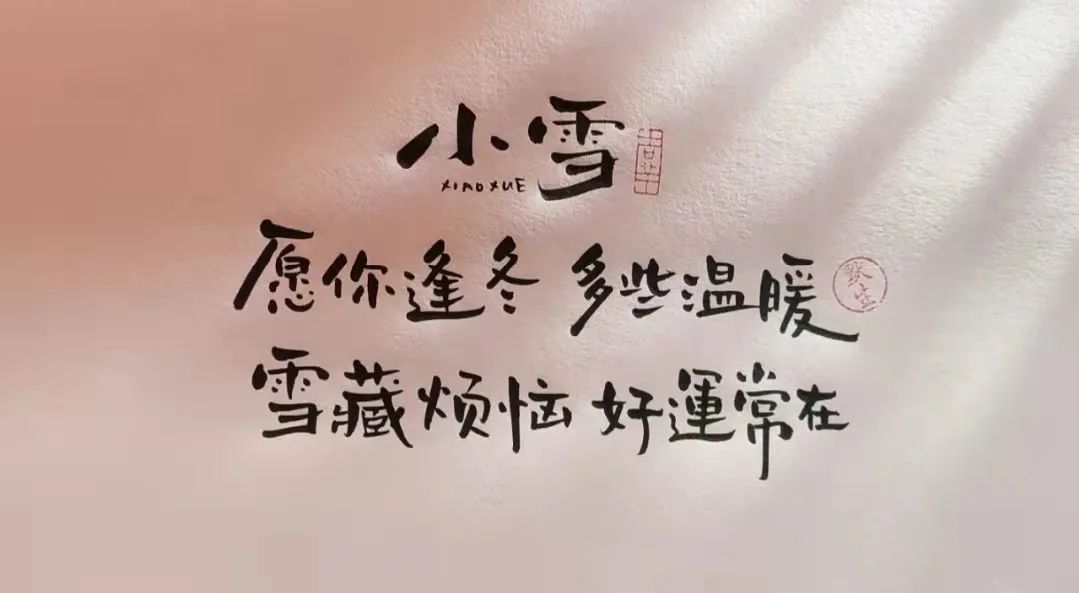 小雪
XIAOXUE
愿你逢冬 多些温暖
雪藏烦恼 好運常在